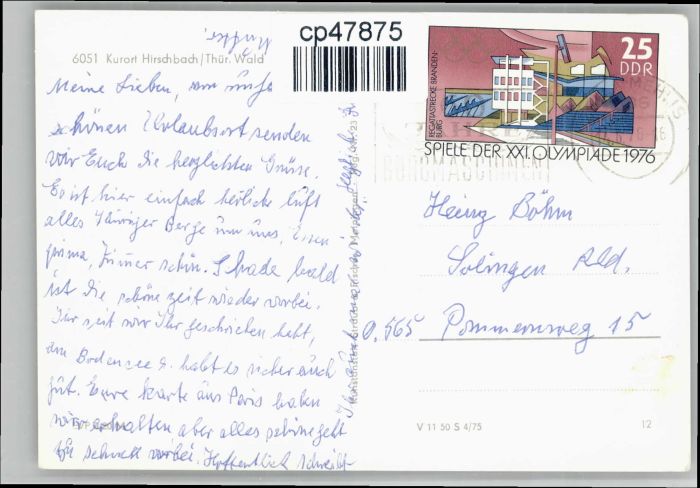 cp47875
6051 Kurort Hirschbach/Thür. Wald
Meine Lieben, vom
schönen Urlaubsort senden
wir Euch die herzlichsten Grüße.
Es ist hier einfach herliche luft
alles Thüringer Berge um uns, Essen
prima, Zimmer schön. Schade bald
ist die schöne Zeit wieder vorbei.
Ihr seit wie Ihr geschrieben habt,
am Bodensee u. habt es sicher auch
gut. Eure Karte aus Paris haben
wir erhalten aber alles schöne geht
zu schnell vorbei. Hoffentlich schreibt
Ihr
25
DDR
REGATTASTRECKE BRANDEN-
BURG
SPIELE DER XXI. OLYMPIADE 1976
Heinz Böhm
Solingen Rld.
0.565 Pommernweg 15
V 11 50 S 4/75
12